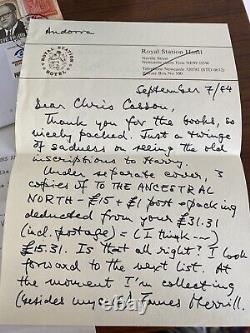 Andorra
ROYAL STATION HOTEL
Royal Station Hotel
Neville Street
Newcastle upon Tyne NE99 1DW
Telephone Newcastle 320781 (STD 0632)
September 7/84
Dear Chris Casson,
Thank you for the books, so
nicely packed. Just a twinge
of sadness on seeing the old
inscriptions to Harry.
Under separate cover, 3
copies of TO THE ANCESTRAL
NORTH - £15 + £1 post + packing
deducted from your £31.31
(incl. postage) = (I think --)
£15.31. Is that all right? I look
forward to the next list. At
the moment I'm collecting
(besides myself) James Merrill,